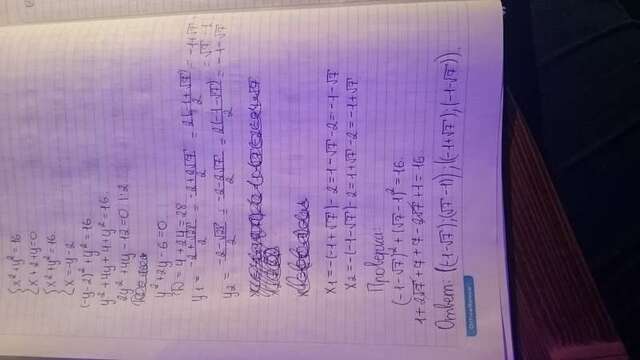 {x² + y² = 16
{x + 2 + y = 0
{x² + y² = 16
{x = -y - 2
(-y-2)² + y² = 16
y² + 4y + 4 + y² = 16
2y² + 4y - 12 = 0 |:2
y² + 2y - 6 = 0
D = 4 + 24 = 28
y₁ = (-2+√28)/2 = (-2+2√7)/2 = 2(-1+√7)/2 = -1+√7
= √7 - 1
y₂ = (-2-√28)/2 = (-2-2√7)/2 = 2(-1-√7)/2 = -1-√7
x₁ = -(-1+√7) - 2 = 1-√7-2 = -1-√7
x₂ = -(-1-√7) - 2 = 1+√7-2 = -1+√7
Проверка:
(-1-√7)² + (√7-1)² = 16
1 + 2√7 + 7 + 7 - 2√7 + 1 = 16
Ответ: ((-1-√7);(√7-1)); ((-1+√7);(-1-√7)).